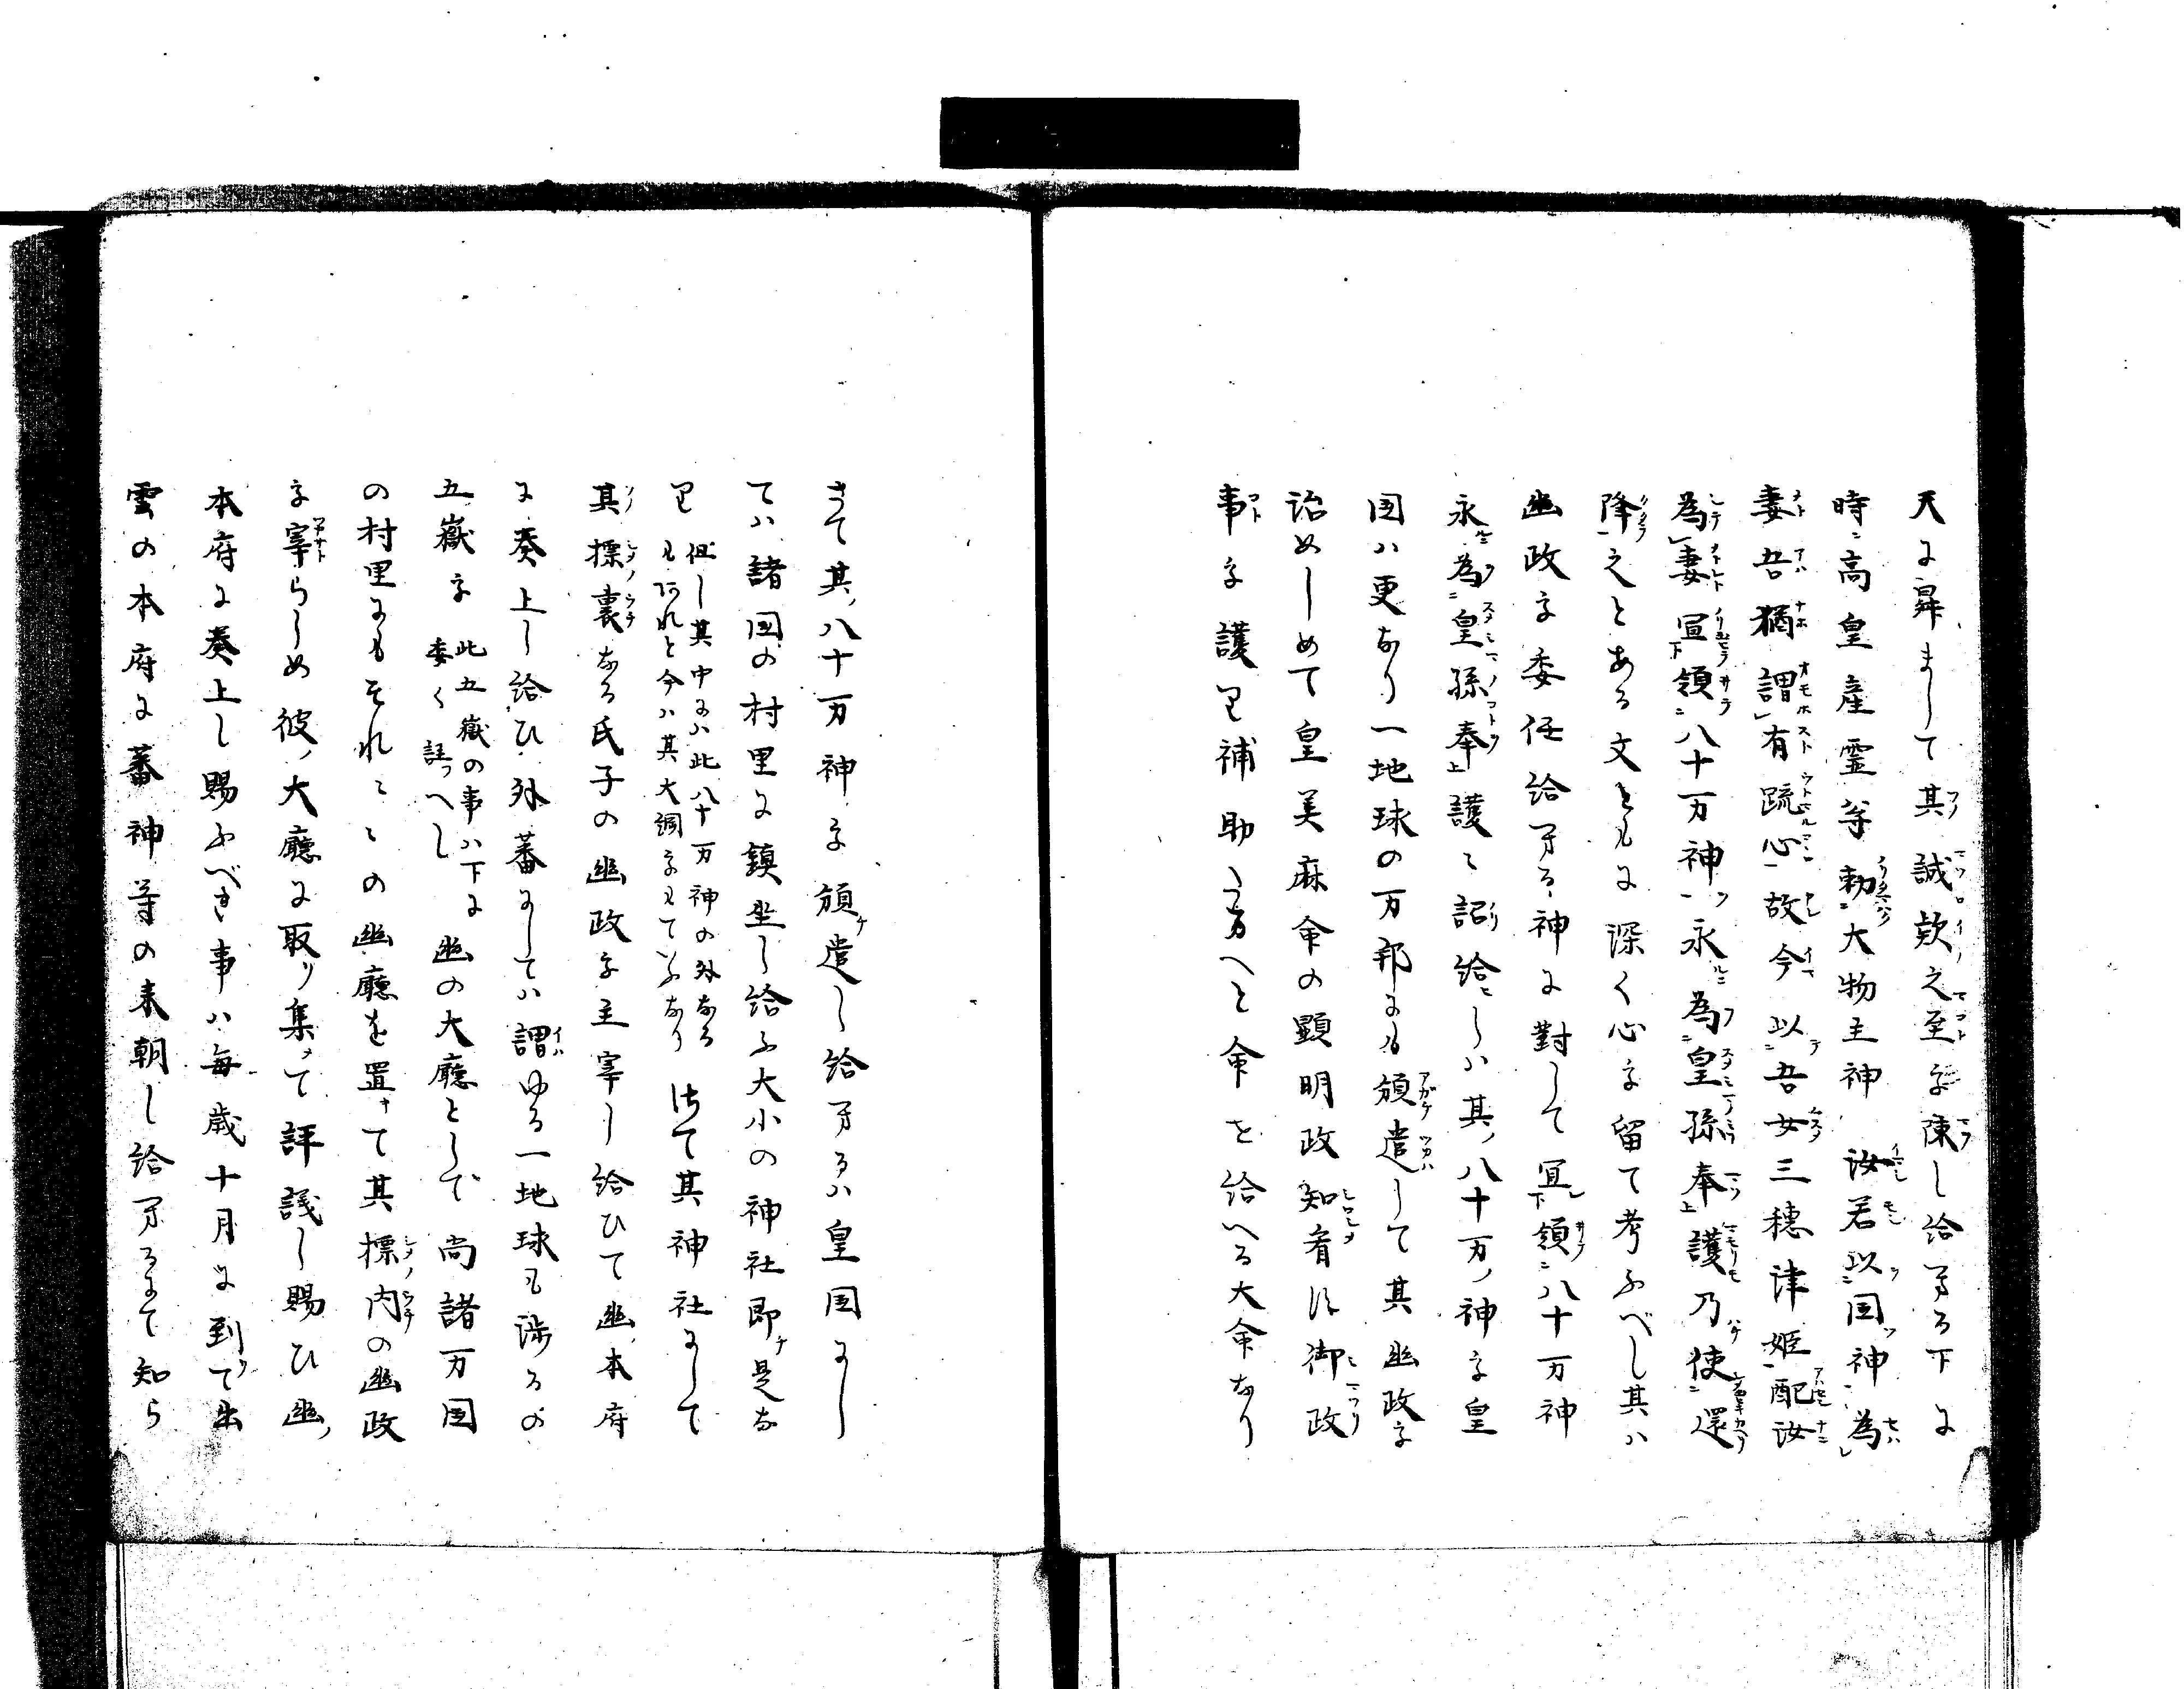 天に昇まして其誠欵之至を陳し給へる下に
時高皇産霊尊勅大物主神汝若以国神為
妻吾猶謂有疏心故今以吾女三穂津姫配汝
為妻宜領八十万神永為皇孫奉護乃使還
降之とある文ともに深く心を留て考ふべし其ハ
幽政を委任給へる神に對して冝領八十万神
永為皇孫奉護と詔給ヒしハ其八十万ノ神を皇
国ハ更なり一地球の万邦にも頒遣して其幽政を
治めしめて皇美麻命の顕明政知看す御政
事を護り補助へと命せ給へる大命なり
さて其八十万神を頒遣し給へるハ皇国にし
てハ諸国の村里に鎮坐し給ふ大小の神社即チ是な
り 但し其中にハ此八十万神の外なる
も阿れと今ハ其大凋をもていふなり 佐て其神社にして
其標裏なる氏子の幽政を主宰し給ひて幽本府
に奏上し給ひ外蕃にしてハ謂ゆる一地球も渉るの
五嶽を 此五嶽の事ハ下に
委く註へし 幽の大廳として尚諸万国
の村里にもそれ〻〻の幽廳を置て其標内の幽政
を宰らしめ彼ノ大廳に取り集メて評議し賜ひ幽ノ
本府に奏上し賜ふべき事ハ毎歳十月に到て出
雲の本府に蕃神等の来朝し給へるにて知ら